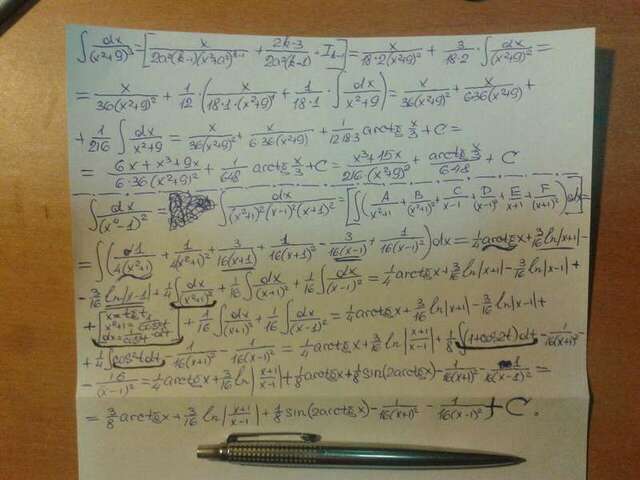 ∫ dx/(x²+9)³ = [x/(2a²(k-1)(x²+a²)^(k-1)) + (2k-3)/(2a²(k-1)) · I_(k-1)] = x/(18·2(x²+9)²) + 3/(18·2) · ∫ dx/(x²+9)² =
= x/(36(x²+9)²) + 1/12 · (x/(18·1·(x²+9)) + 1/(18·1) · ∫ dx/(x²+9)) = x/(36(x²+9)²) + x/(6·36(x²+9)) +
+ 1/216 ∫ dx/(x²+9) = x/(36(x²+9)²) + x/(6·36(x²+9)) + 1/(12·18·3) arctg x/3 + C =
= (6x+x³+9x)/(6·36(x²+9)²) + 1/648 arctg x/3 + C = (x³+15x)/(216(x²+9)²) + (arctg x/3)/648 + C
∫ dx/(x⁴-1)² = ∫ dx/((x²+1)²(x-1)²(x+1)²) = [∫(A/(x²+1) + B/(x²+1)² + C/(x-1) + D/(x-1)² + E/(x+1) + F/(x+1)²)dx] =
= ∫(1/(4(x²+1)) + 1/(4(x²+1)²) + 3/(16(x+1)) + 1/(16(x+1)²) - 3/(16(x-1)) + 1/(16(x-1)²))dx = 1/4 arctg x + 3/16 ln|x+1| -
- 3/16 ln|x-1| + 1/4 ∫ dx/(x²+1)² + 1/16 ∫ dx/(x+1)² + 1/16 ∫ dx/(x-1)² = 1/4 arctg x + 3/16 ln|x+1| - 3/16 ln|x-1| +
+ [x = tg t, x²+1 = 1/cos²t, dx = 1/cos²t · dt] + 1/16 ∫ dx/(x+1)² + 1/16 ∫ dx/(x-1)² = 1/4 arctg x + 3/16 ln|x+1| - 3/16 ln|x-1| +
+ 1/4 ∫ cos²t dt - 1/(16(x+1)) - 1/(16(x-1)) = 1/4 arctg x + 3/16 ln|(x+1)/(x-1)| + 1/8 ∫(1+cos2t)dt - 1/(16(x+1)²) -
- 16/(x-1)² = 1/4 arctg x + 3/16 ln|(x+1)/(x-1)| + 1/8 arctg x + 1/8 sin(2arctg x) - 1/(16(x+1)²) - 1/(16(x-1)²) =
= 3/8 arctg x + 3/16 ln|(x+1)/(x-1)| + 1/8 sin(2arctg x) - 1/(16(x+1)²) - 1/(16(x-1)²) + C.